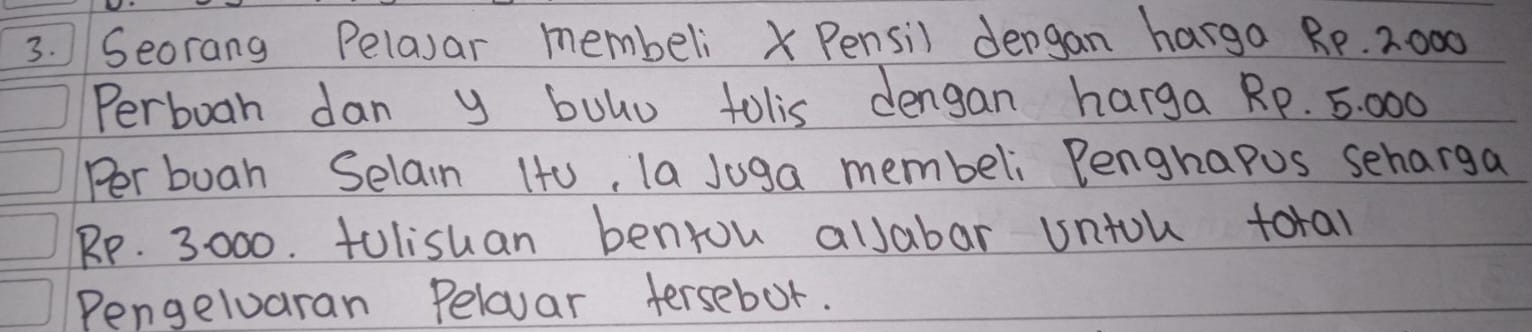 3. Seorang Pelajar membeli x Pensil dengan harga Rp. 2.000
Perbuah dan y buku tulis dengan harga Rp. 5.000
Per buah Selain itu, ia juga membeli Penghapus seharga
Rp. 3.000. tuliskan bentuk aljabar untuk total
Pengeluaran Pelajar tersebut.